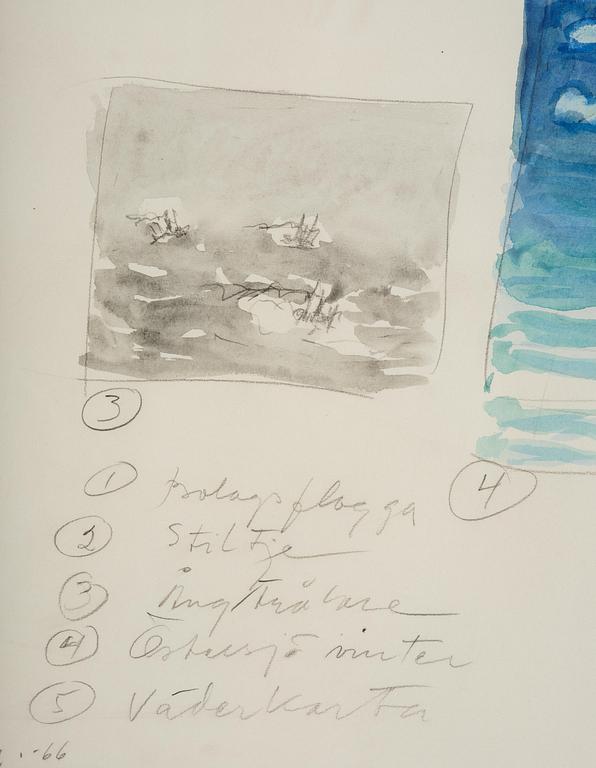 3
4
1 Bolagsflagga
2 Stiltje
3 Ångtrålare
4 Östersjö vinter
5 Väderkarta
-66